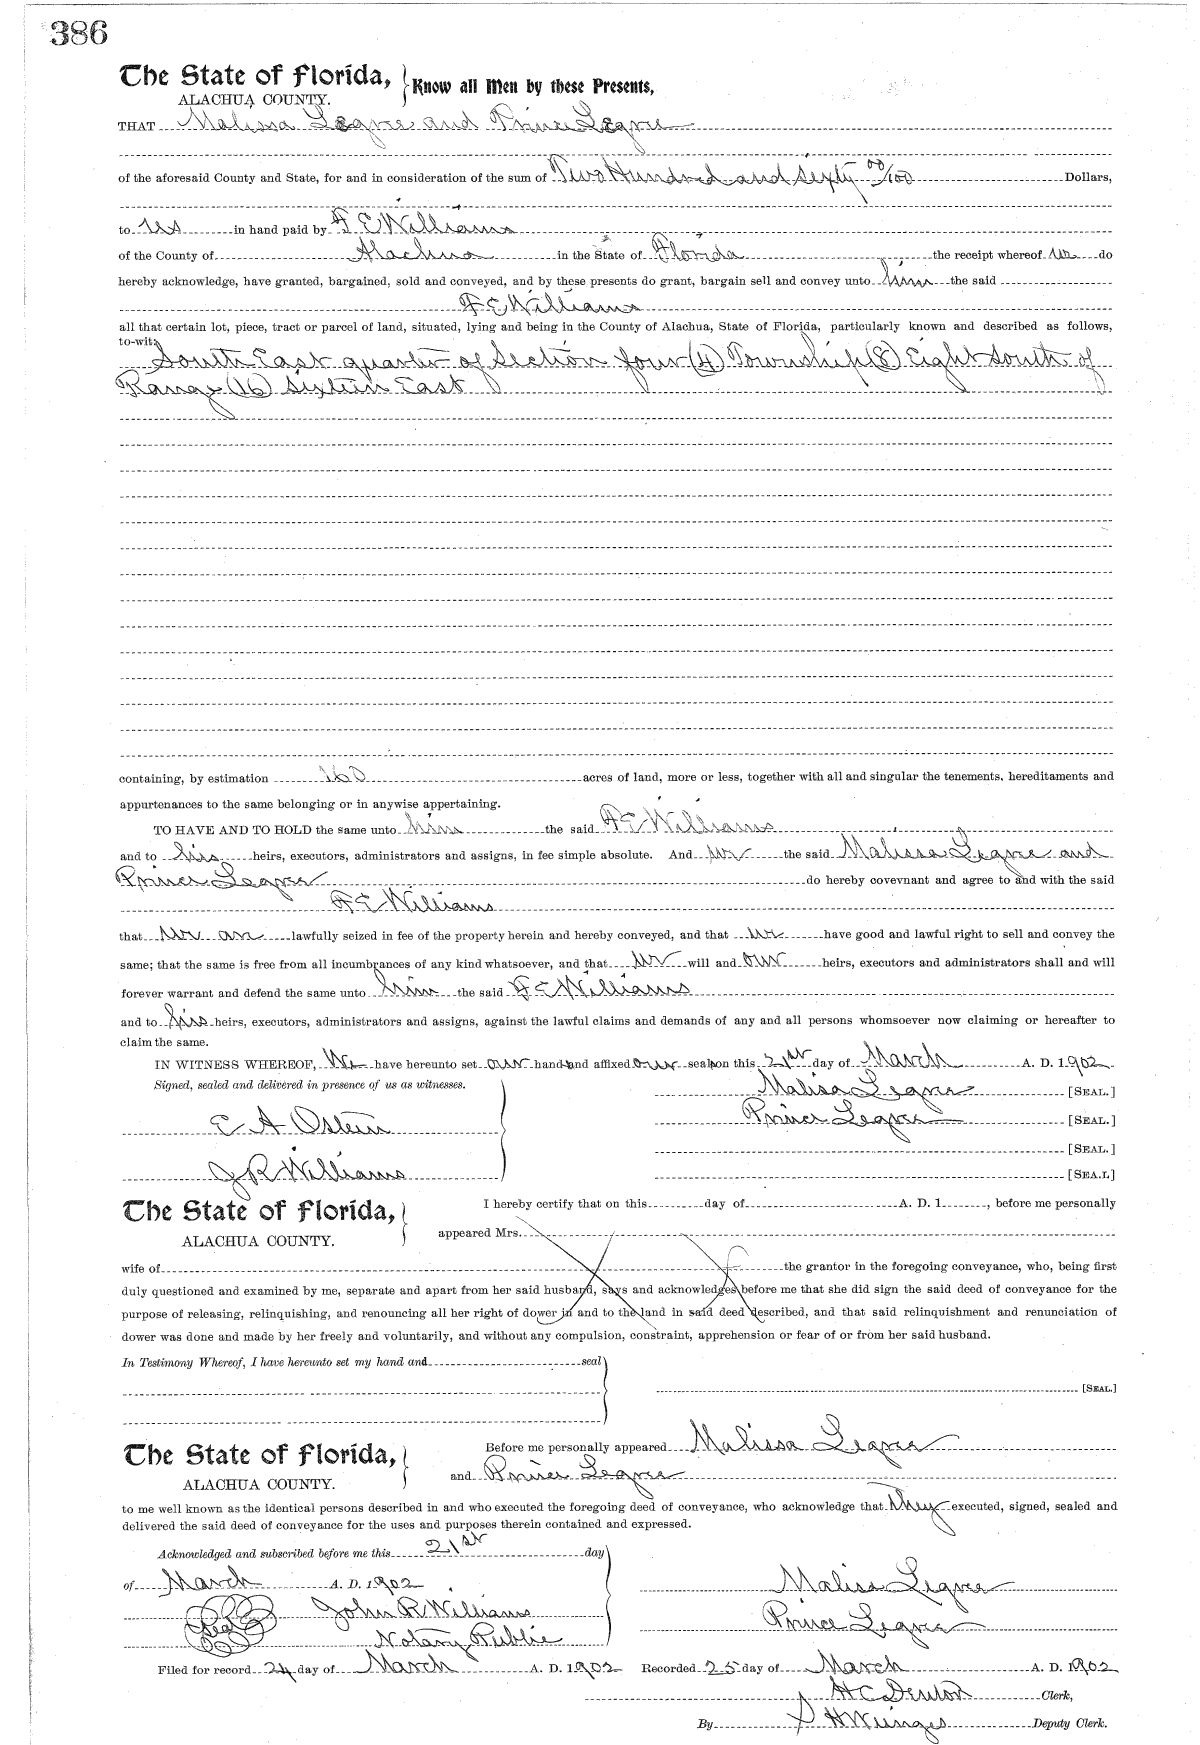 386
The State of Florida, Know all Men by these Presents,
ALACHUA COUNTY.
THAT Malissa Legree and Prince Legree
of the aforesaid County and State, for and in consideration of the sum of Two Hundred and Sixty 00/100 Dollars,
to us in hand paid by F E Williams
of the County of Alachua in the State of Florida the receipt whereof we do
hereby acknowledge, have granted, bargained, sold and conveyed, and by these presents do grant, bargain sell and convey unto him the said
F E Williams
all that certain lot, piece, tract or parcel of land, situated, lying and being in the County of Alachua, State of Florida, particularly known and described as follows,
to-wit:
South East quarter of Section four (4) Township (8) Eight South of
Range (16) Sixteen East
containing, by estimation 160 acres of land, more or less, together with all and singular the tenements, hereditaments and
appurtenances to the same belonging or in anywise appertaining.
TO HAVE AND TO HOLD the same unto him the said F E Williams
and to his heirs, executors, administrators and assigns, in fee simple absolute. And we the said Malissa Legree and
Prince Legree do hereby covevnant and agree to and with the said
F E Williams
that we are lawfully seized in fee of the property herein and hereby conveyed, and that we have good and lawful right to sell and convey the
same; that the same is free from all incumbrances of any kind whatsoever, and that we will and our heirs, executors and administrators shall and will
forever warrant and defend the same unto him the said F E Williams
and to his heirs, executors, administrators and assigns, against the lawful claims and demands of any and all persons whomsoever now claiming or hereafter to
claim the same.
IN WITNESS WHEREOF, We have hereunto set our hands and affixed our seals on this 21st day of March A. D. 1902
Signed, sealed and delivered in presence of us as witnesses.
Malissa Legree [SEAL.]
Prince Legree [SEAL.]
E A Ostein
[SEAL.]
J R Williams [SEAL.]
The State of Florida, I hereby certify that on this day of A. D. 1 , before me personally
ALACHUA COUNTY. appeared Mrs.
wife of the grantor in the foregoing conveyance, who, being first
duly questioned and examined by me, separate and apart from her said husband, says and acknowledges before me that she did sign the said deed of conveyance for the
purpose of releasing, relinquishing, and renouncing all her right of dower in and to the land in said deed described, and that said relinquishment and renunciation of
dower was done and made by her freely and voluntarily, and without any compulsion, constraint, apprehension or fear of or from her said husband.
In Testimony Whereof, I have hereunto set my hand and seal
[SEAL.]
The State of Florida, Before me personally appeared Malissa Legree
ALACHUA COUNTY. and Prince Legree
to me well known as the identical persons described in and who executed the foregoing deed of conveyance, who acknowledge that they executed, signed, sealed and
delivered the said deed of conveyance for the uses and purposes therein contained and expressed.
Acknowledged and subscribed before me this 21st day
of March A. D. 1902 Malissa Legree
Seal John R Williams Prince Legree
Notary Public
Filed for record 24 day of March A. D. 1902 Recorded 25 day of March A. D. 1902
H C Denton Clerk,
By S H Wienges Deputy Clerk.